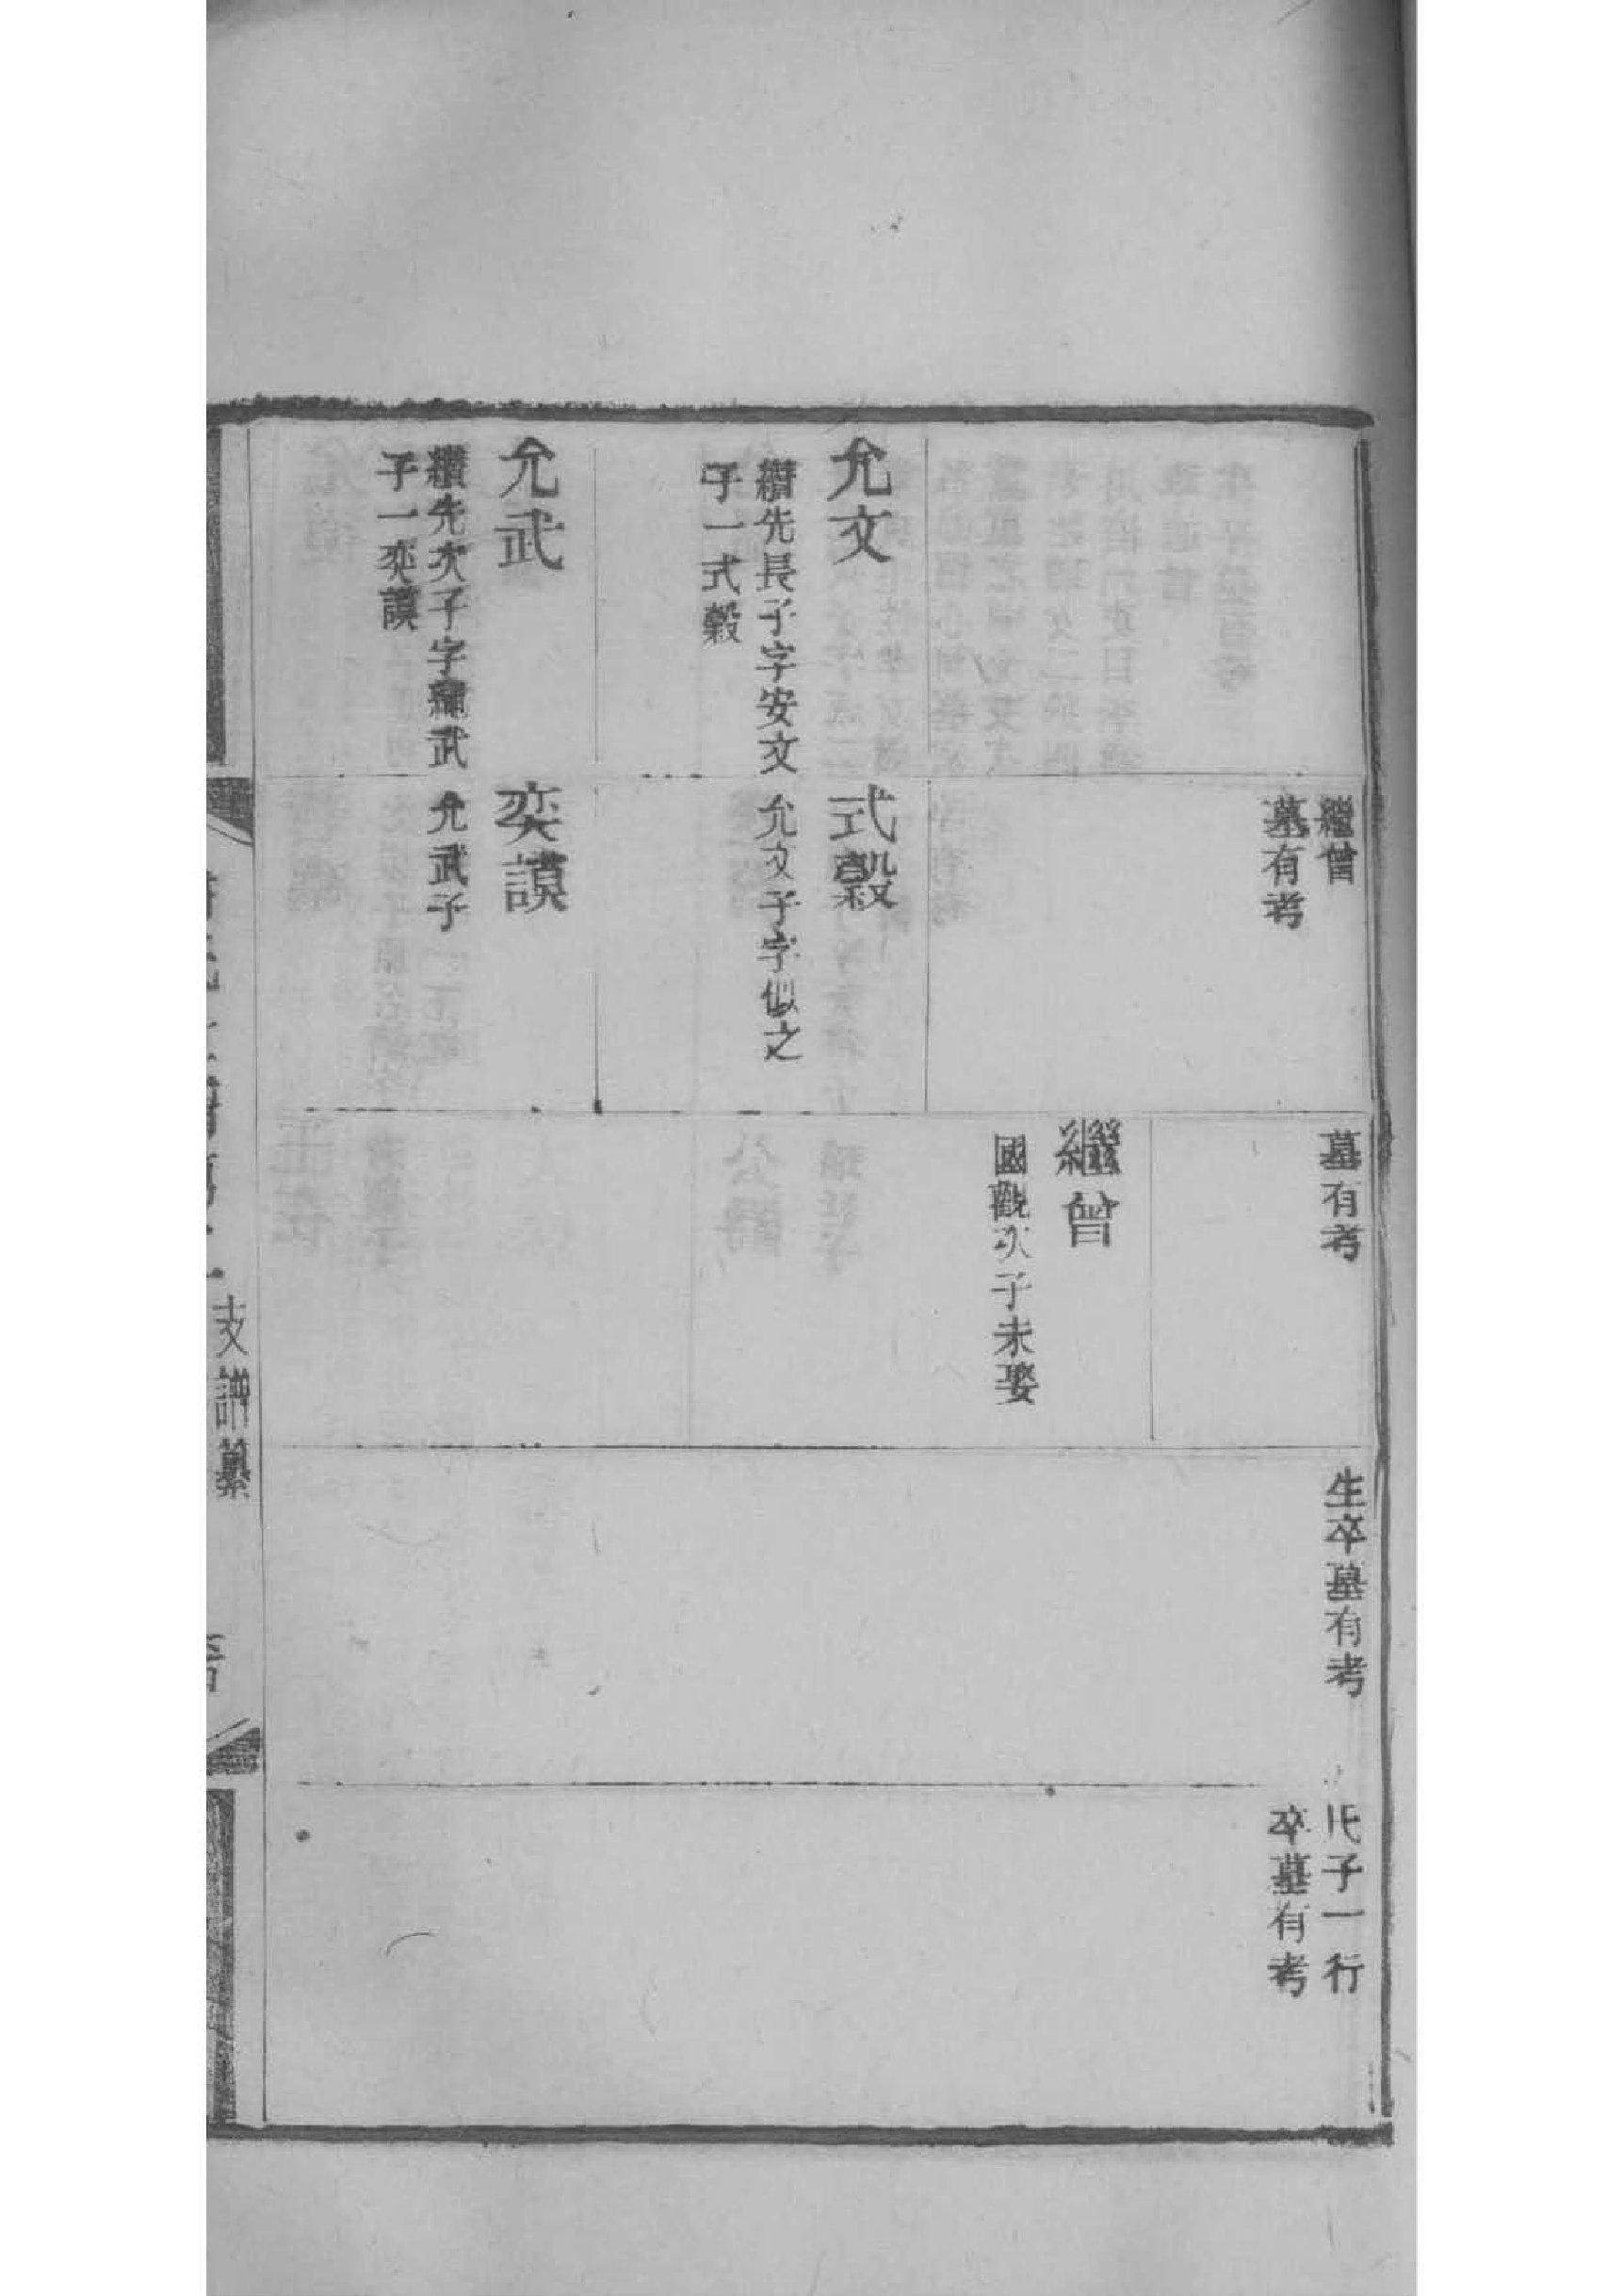 允文
纘先長子字安文
子一式糓
允武
纘先次子字繩武
子一奕謨
繼曾
墓有考
式糓
允文子字似之
奕謨
允武子
墓有考
繼曾
國觀次子未娶
生卒墓有考
氏子一行
卒墓有考
支譜纂